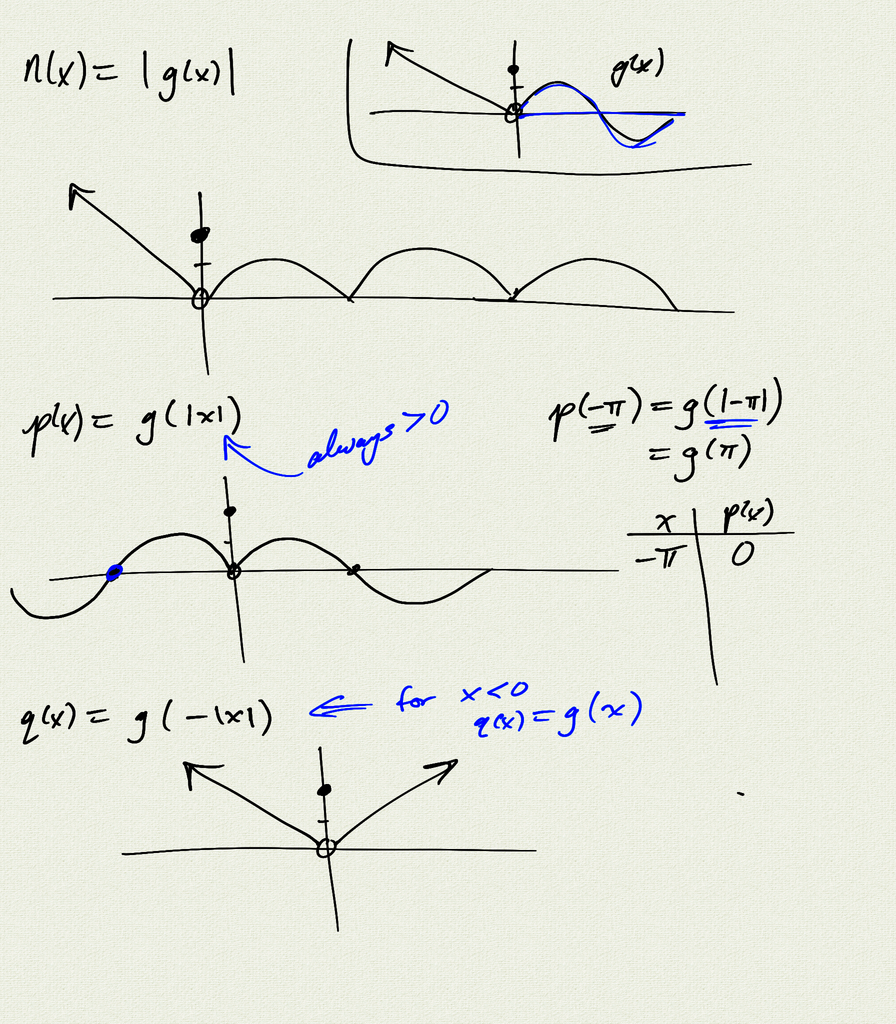 n(x) = |g(x)|
g(x)
p(x) = g(|x|)
always > 0
p(-π) = g(|-π|)
= g(π)
x p(x)
-π 0
q(x) = g(-|x|)
⇐ for x < 0
q(x) = g(x)